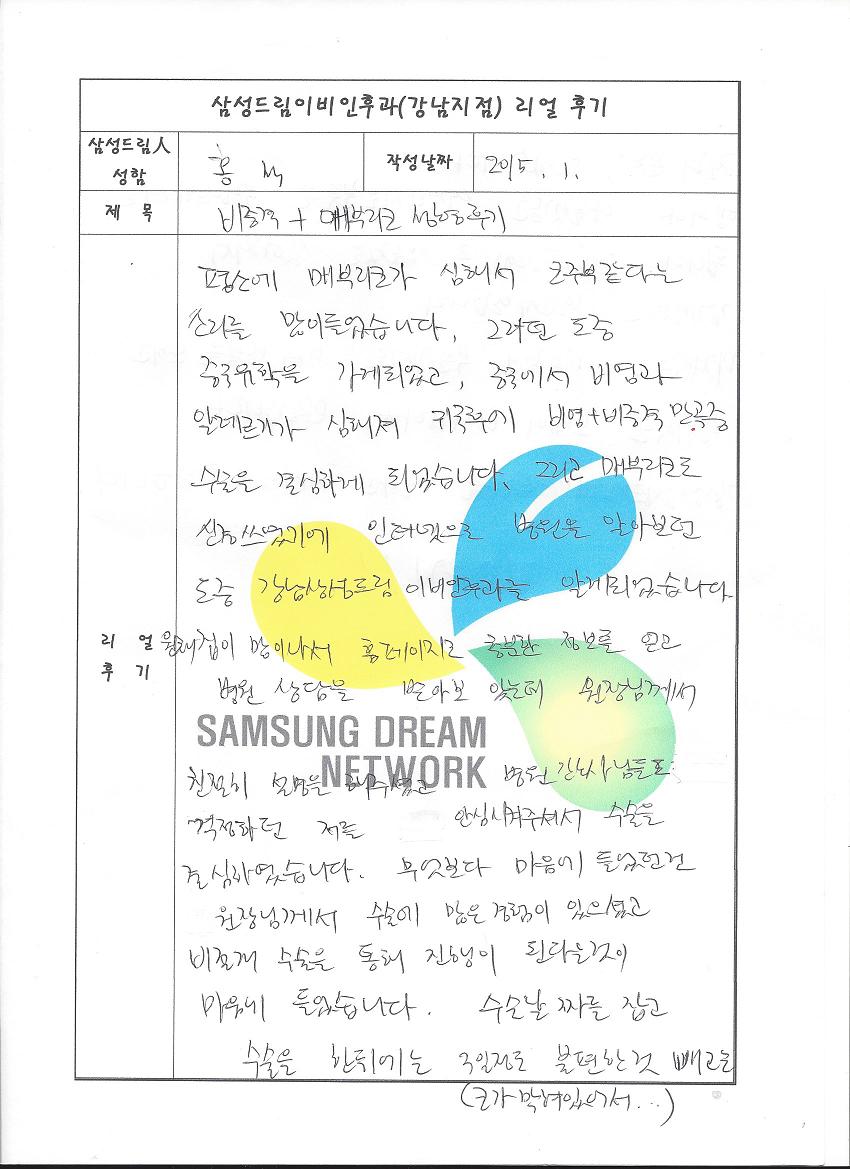 삼성드림이비인후과(강남지점) 리얼 후기
삼성드림人 성함
홍
작성날짜
2015. 1.
제 목
비중격 + 매부리코 성형후기
리 얼 후 기
평소에 매부리코가 심해서 코주부같다는
소리를 많이들었습니다. 그러던 도중
중국유학을 가게되었고, 중국에서 비염과
알레르기가 심해져 귀국후에 비염+비중격 만곡증
수술을 결심하게 되었습니다. 그리고 매부리코로
신경쓰였기에 인터넷으로 병원을 알아보던
도중 강남삼성드림 이비인후과를 알게되었습니다
원래 겁이 많이나서 홈페이지로 충분한 정보를 얻고
병원 상담을 받아보 았는데 원장님께서
SAMSUNG DREAM
NETWORK
친절히 설명을 해주셨고 병원 간호사님들도
걱정하던 저를 안심시켜주셔서 수술을
결심하였습니다. 무엇보다 마음에 들었던건
원장님께서 수술에 많은 경험이 있으셨고
비절개 수술을 통해 진행이 된다는것이
마음에 들었습니다. 수술날짜를 잡고
수술을 한뒤에는 3일정도 불편한것 빼고는
(코가 막혀있어서...)